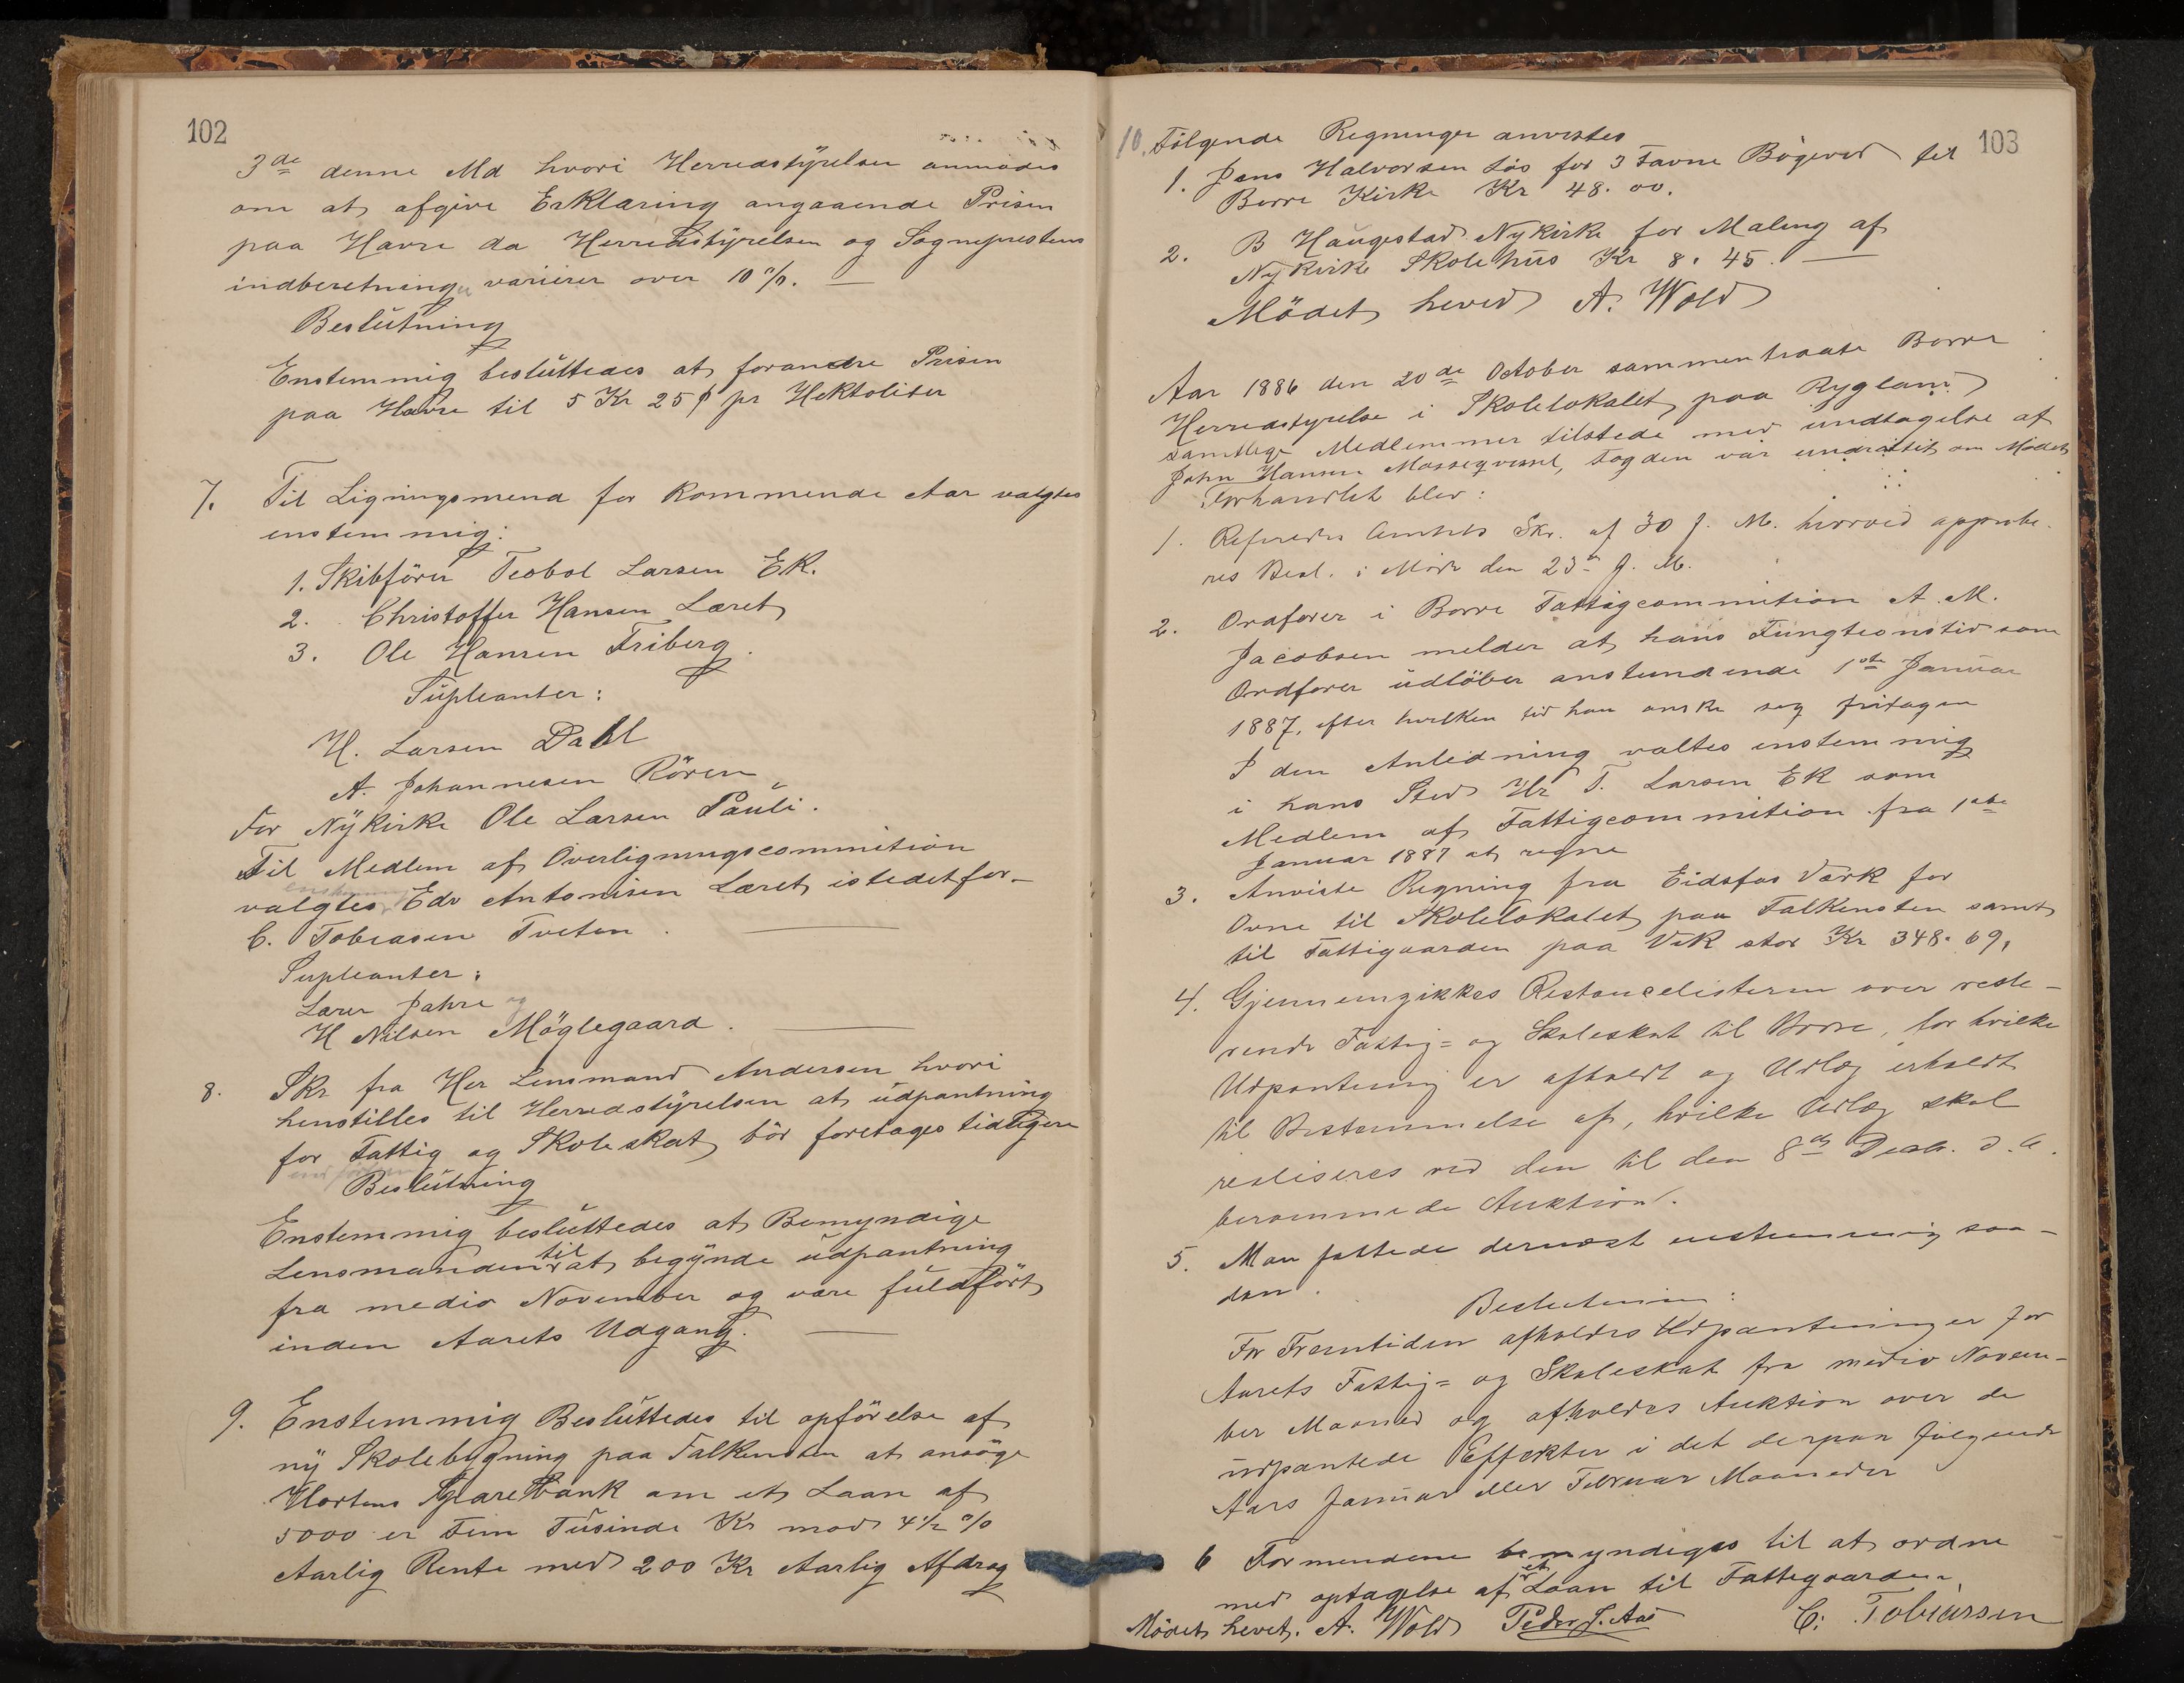 102
3de denne Md hvori Herredstÿrelsen anmodes
om at afgive Erklæring angaaende Prisen
paa Havre da Herredstÿrelsen og Sogneprestens
indberetninger varierer over 10 %. —
Beslutning
Enstemmig besluttedes at forandre Prisen
paa Havre til 5 Kr 25 ø pr Hektoliter
7. Til Ligningsmend for Kommende Aar valgtes
enstemmig:
1. Skibförer Teobol Larsen Ek.
2. Christoffer Hansen Læret
3. Ole Hansen Friberg.
Supleanter:
H. Larsen Dahl
A. Johannesen Rören
For Nÿkirke Ole Larsen Pauli.
Til Medlem af Overligningscommition
valgtes Edv Antonisen Læret istedetfor-
C. Tobiasen Tveten. —
Supleanter:
Lærer Jahre og
H Nilsen Möglegaard. —
8. Skr fra Her Lensmand Andersen hvori
henstilles til Herredstÿrelsen at udpantning
for Fattig og Skoleskat bör foretages tidligere
Beslutning
Enstemmig besluttedes at Bemyndige
Lensmanden til at begÿnde udpantning
fra medio November og være fuldfört
inden Aarets Udgang. —
9. Enstemmig Besluttedes til opförelse af
nÿ Skolebygning paa Falkensten at ansöge
Hortens Sparebank om et Laan af
5000 er Fem Tusinde Kr mod 4½ %
Aarlig Rente med 200 Kr Aarlig Afdrag
103
10. Fölgende Regninger anvistes
1. Jens Halvorsen Løs for 3 Favne Bögeved til
Borre Kirke Kr 48.00.
2. B Haugestad Nykirke for Maling af
Nÿkirke Skolehus Kr 8.45. —
Mödet heved A. Wold
Aar 1886 den 20de October sammentraate Borre
Herredstyrelse i Skolelokalet paa Rygland
samtlige Medlemmer tilstede med undtagelse af
John Hansen
Forhandlet blev:
1. Refereder Amtets Skr. af 30 f. M. hvorved approbe-
res Besl. i Möde den 23de f. M.
2. Ordfører i Borre Fattigcommition A. M.
Jacobsen melder at hans Fungtionstid som
Ordfører udlöber anstundende 1ste Januar
1887, efter hvilken tid han ønske seg fritagen
I den Anledning valtes enstemmig
i hans Sted Hr T. Larsen Ek som
Medlem af Fattigcommition fra 1ste
Januar 1887 at regne
3. Anviste Regning fra Eidsfos Værk for
Ovne til Skolelokalet paa Falkensten samt
til Fattigaarden paa Vik stor Kr 348.69,
4. Gjennemgikkes Restancelisterne over reste-
rende Fattig= og Skoleskat til Borre, for hvilke
Udpantning er afholdt og Udlæg erholdt
til Bestemmelse af, hvilke Udlæg skal
realiseres ved den til den 8de Decb. d. A.
berammede Auktion.
5. Man fattede dernæst enstemmig saa-
dan.
Beslutning:
For Fremtiden afholdes Udpantninger for
Aarets Fattig= og Skoleskat fra medio Novem-
ber Maaned og afholdes Auktion over de
udpantede Effekter i det derpaa følgende
Aars Januar eller Februar Maaneder
6 Formendene bemyndiges til at ordne
med optagelse af et Laan til Fattigaarden
Mödet hevet. A. Wold Peder J. Aas C. Tobiassen